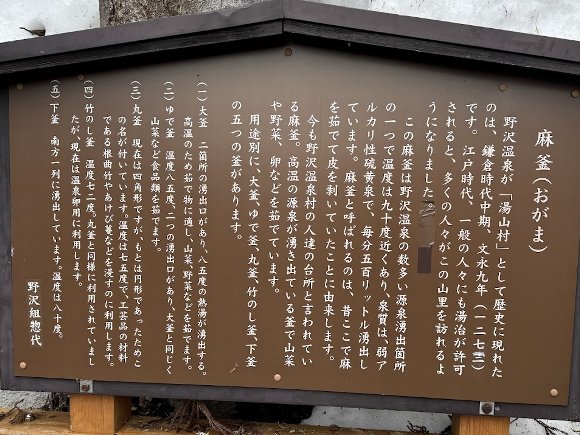 麻釜(おがま)
野沢温泉が「湯山村」として歴史に現れた
のは、鎌倉時代中期、文永九年(一二七二)
です。江戸時代、一般の人々にも湯治が許可
されると、多くの人々がこの山里を訪れるよ
うになりました。
この麻釜は野沢温泉の数多い源泉湧出箇所
の一つで温度は九十度近くあり、泉質は、弱ア
ルカリ性硫黄泉で、毎分五百リットル湧出し
ています。麻釜と呼ばれるのは、昔ここで麻
を茹でて皮を剥いでいたことに由来します。
今も野沢温泉村の人達の台所と言われてい
る麻釜。高温の源泉が湧き出ている釜で山菜
や野菜、卵などを茹でています。
用途別に、大釜、ゆで釜、丸釜、竹のし釜、下釜
の五つの釜があります。
(一)大釜 二箇所の湧出口があり、八五度の熱湯が湧出する。
高温のため茹で物に適し、山菜、野菜などを茹でます。
(二)ゆで釜 温度八五度、二つの湧出口があり、大釜と同じく
山菜など食品類を茹でます。
(三)丸釜 現在は四角形ですが、もとは円形であったためこ
の名が付いています。温度は七五度で、工芸品の材料
である根曲竹やあけび蔓などを浸すのに利用します。
(四)竹のし釜 温度七二度。丸釜と同様に利用されていまし
たが、現在は温泉卵用に利用します。
(五)下釜 南方一列に湧出しています。温度は八十度。
野沢組惣代